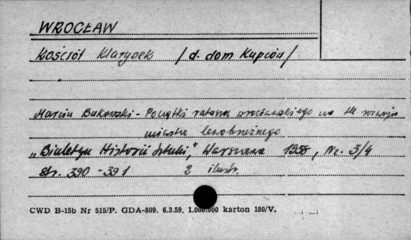 WROCŁAW
Kościół Klarysek /d. dom Kupców/
Marcin Bukowski - Początki ratusza wrocławskiego na tle rozwoju
miasta lewobrzeżnego
„Biuletyn Historii Sztuki", Warszawa 1958, Nr. 3/4
str. 390-391 2 ilustr.
CWD B-15b Nr 515/P. GDA-809. 6.3.59. 1.000.000 karton 180/V.